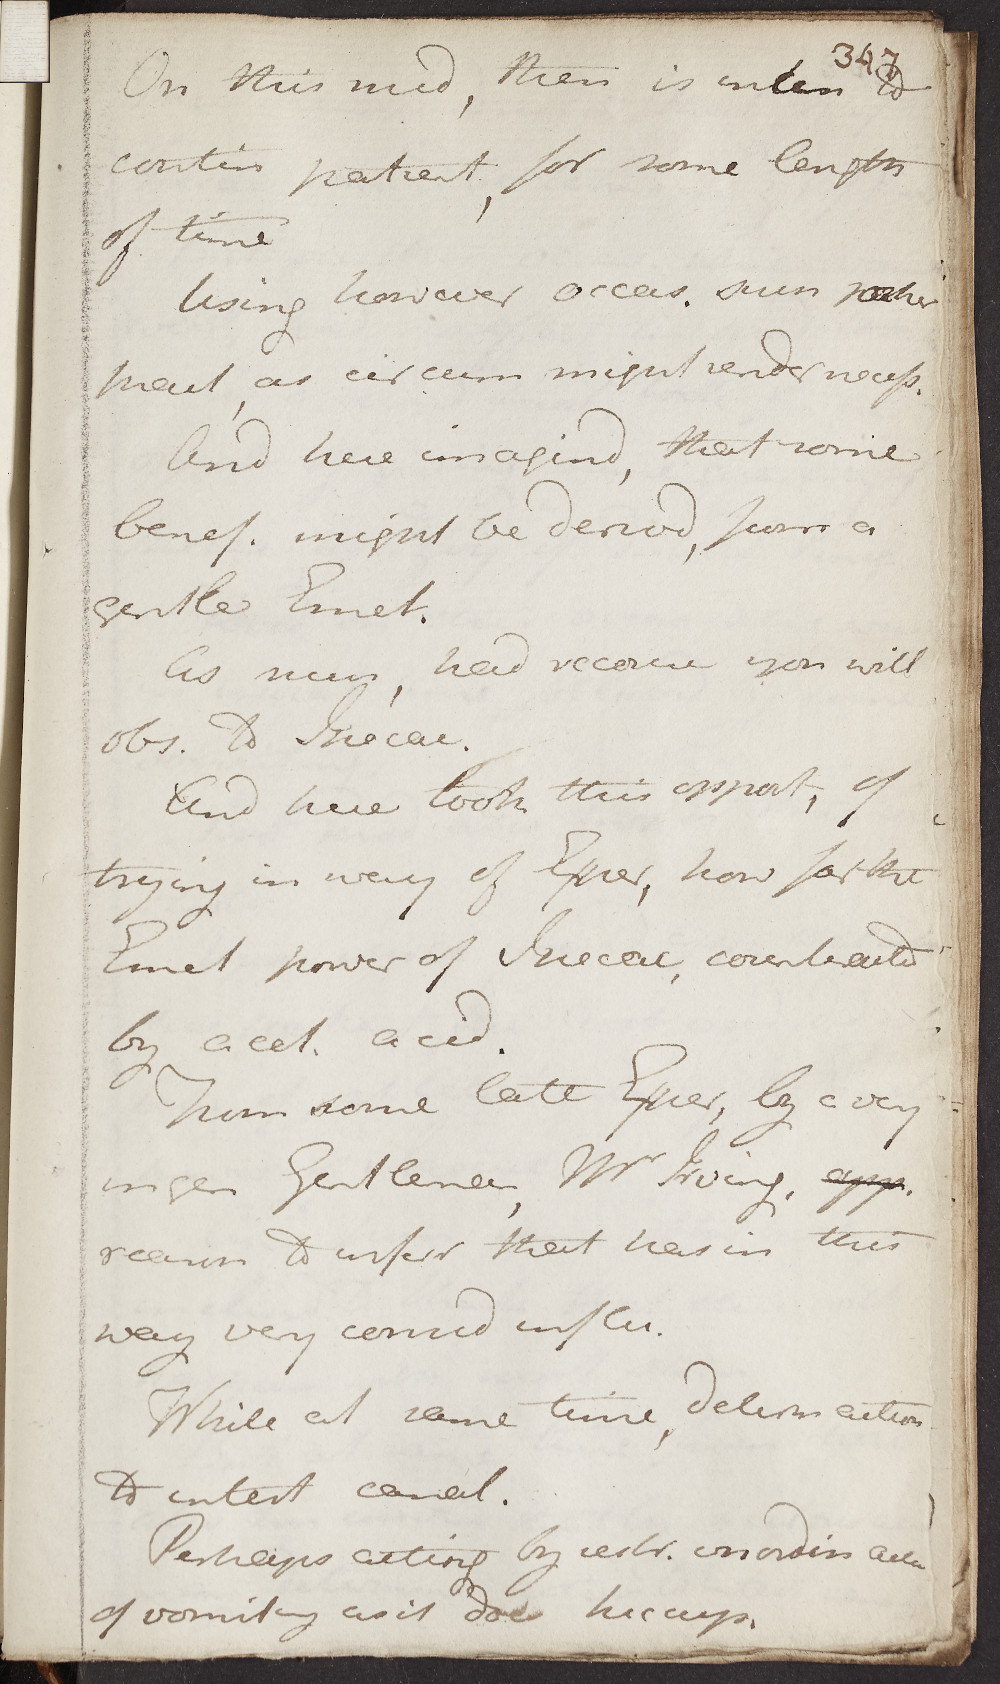 347
On this med, then is inten to
contin patient, for some length
of time
Using however occas. such other
meas, as circum might render necess.
And here imagind, that some
benef. might be derivd, from a
gentle Emet.
As such, had recourse you will
obs. to Ipecac.
And here took this opport, of
trying in way of Exper, how far the
Emet power of Ipecac, counteractd
by acet. acid.
From some late Exper, by a very
ingen Gentleman, Mr Irving, app.
reason to inferr that has in this
way very consid influ.
While at same time, determ action
to intest canal.
Perhaps acting by restr. inordin actn
of vomiting as it doe hiccup.